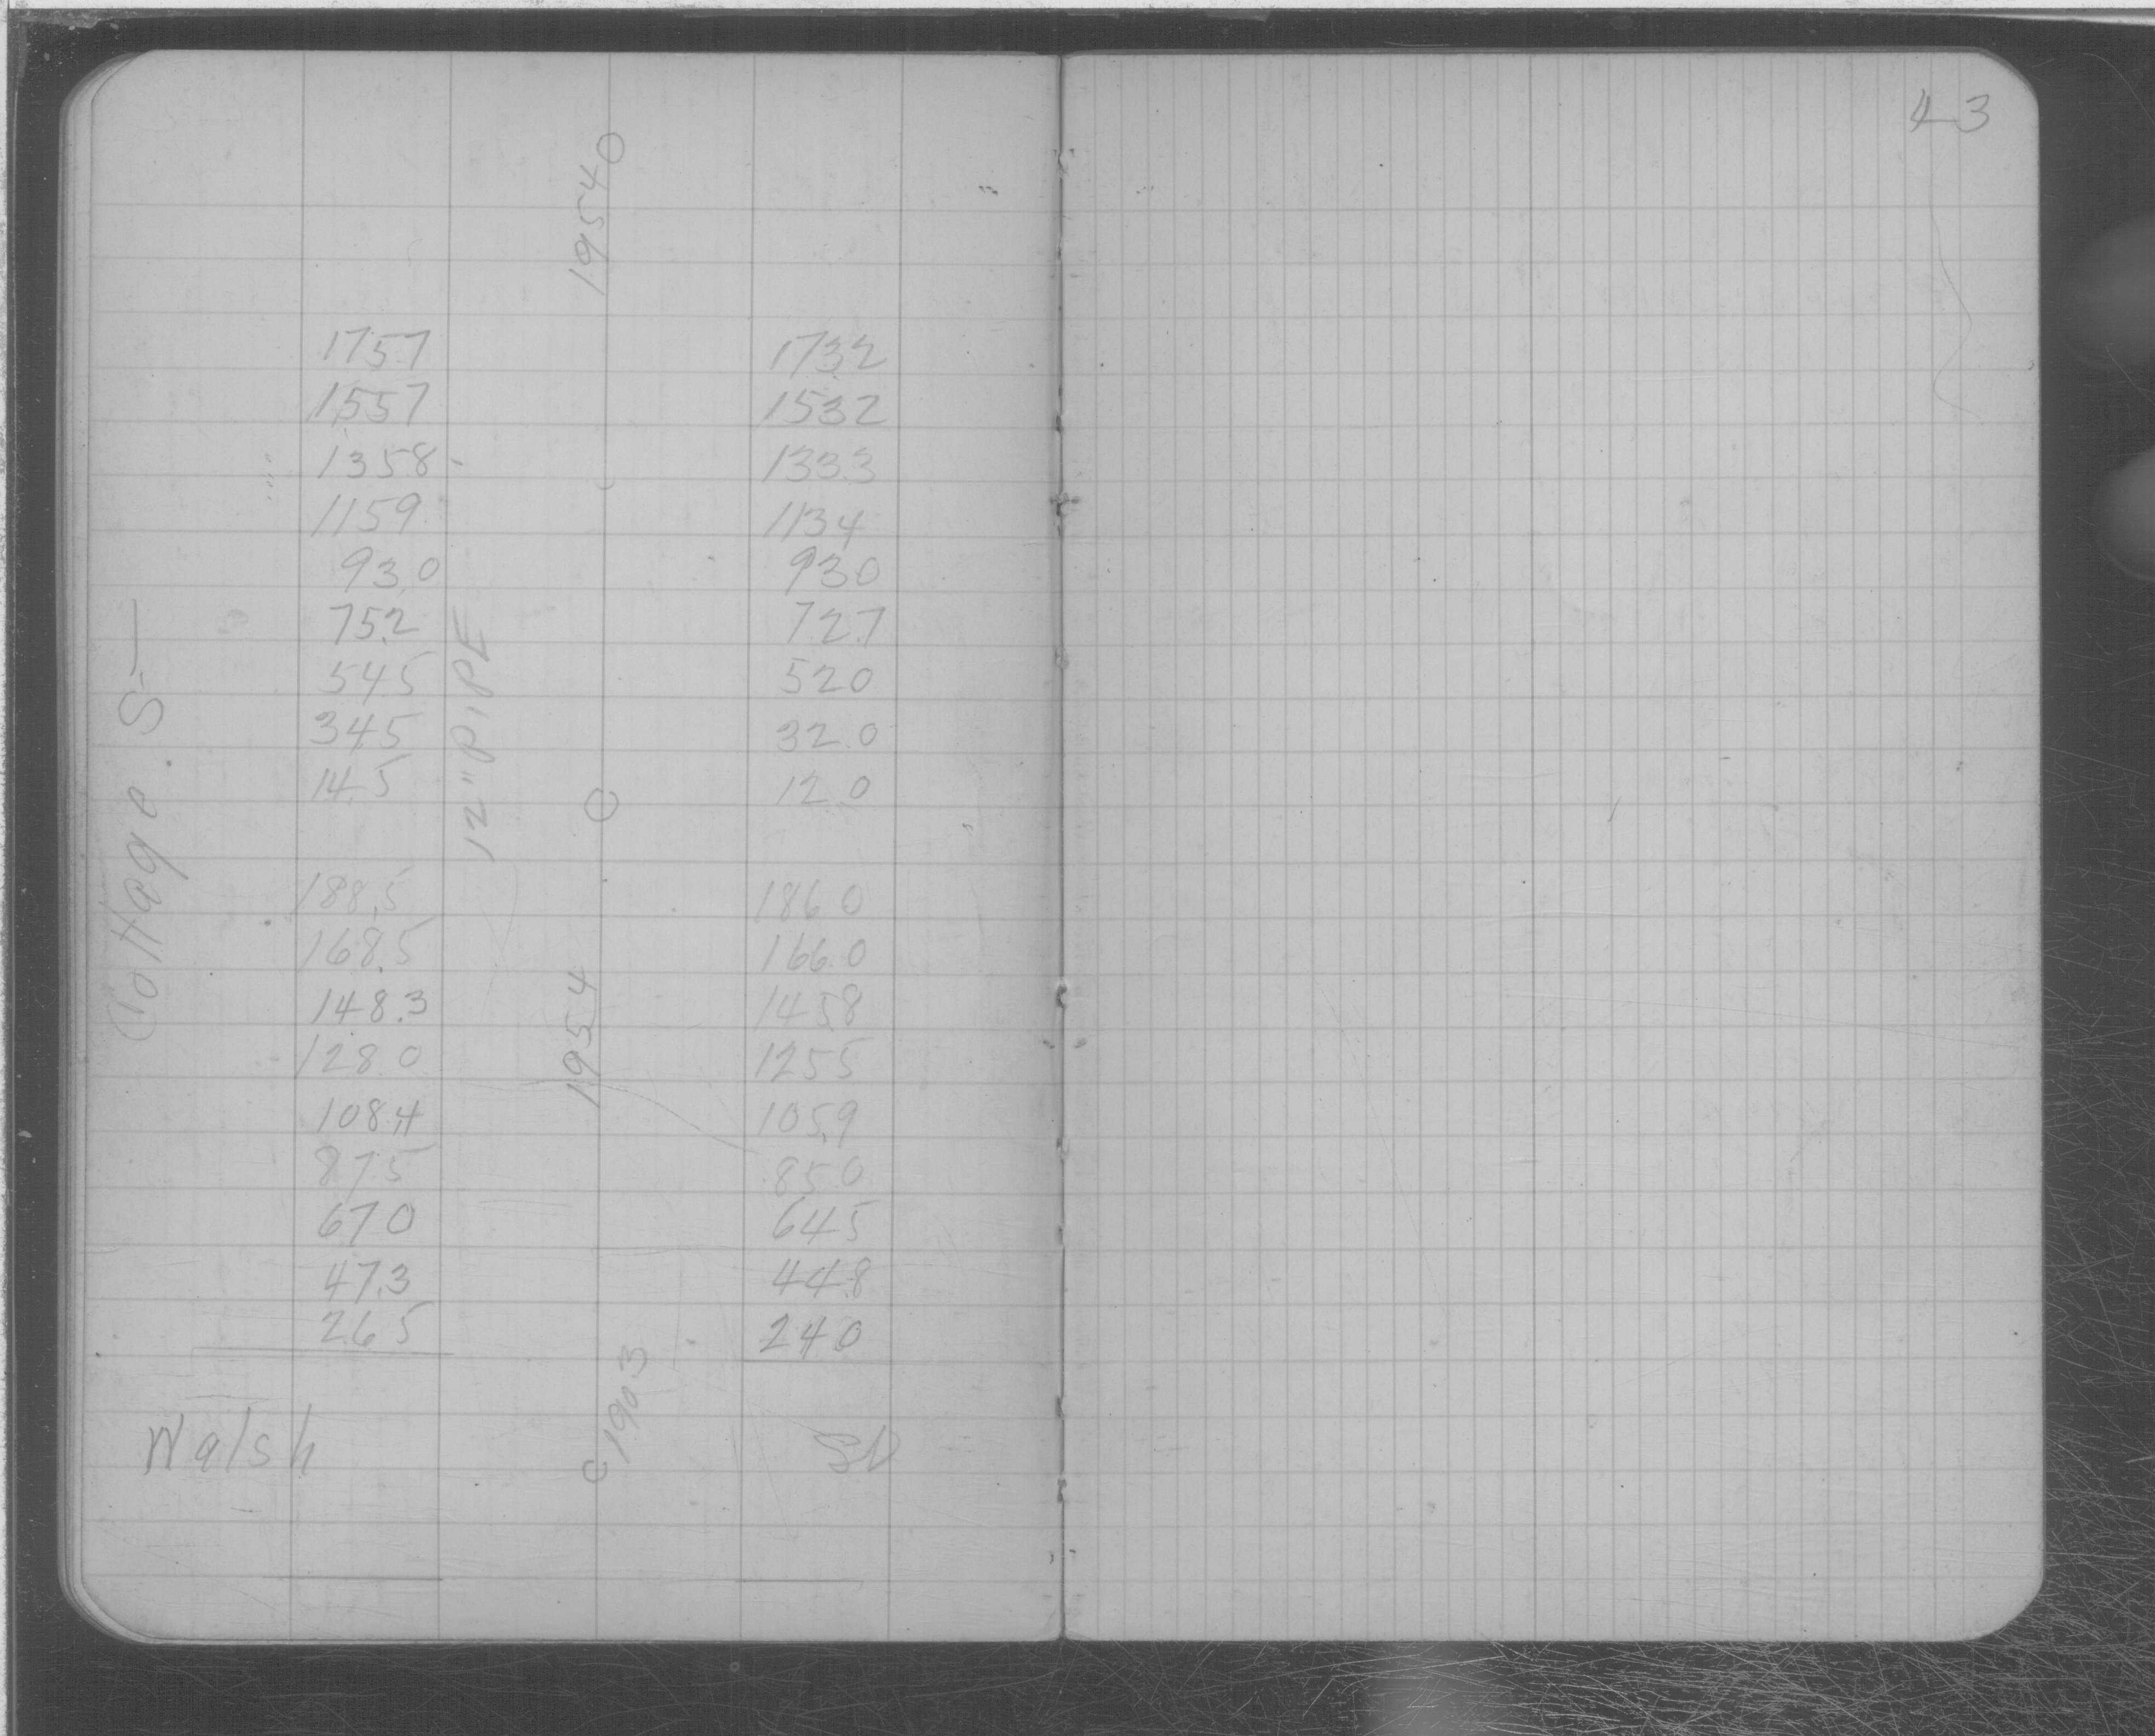 43
1954
175.7 173.2
155.7 153.2
135.8 133.3
115.9 113.4
93.0 93.0
75.2 72.7
54.5 52.0
34.5 32.0
14.5 12.0
12" PIPE
Cottage St
188.5 186.0
168.5 166.0
148.3 145.8
128.0 125.5
108.4 105.9
87.5 85.0
67.0 64.5
47.3 44.8
26.5 24.0
1954
1903
Walsh